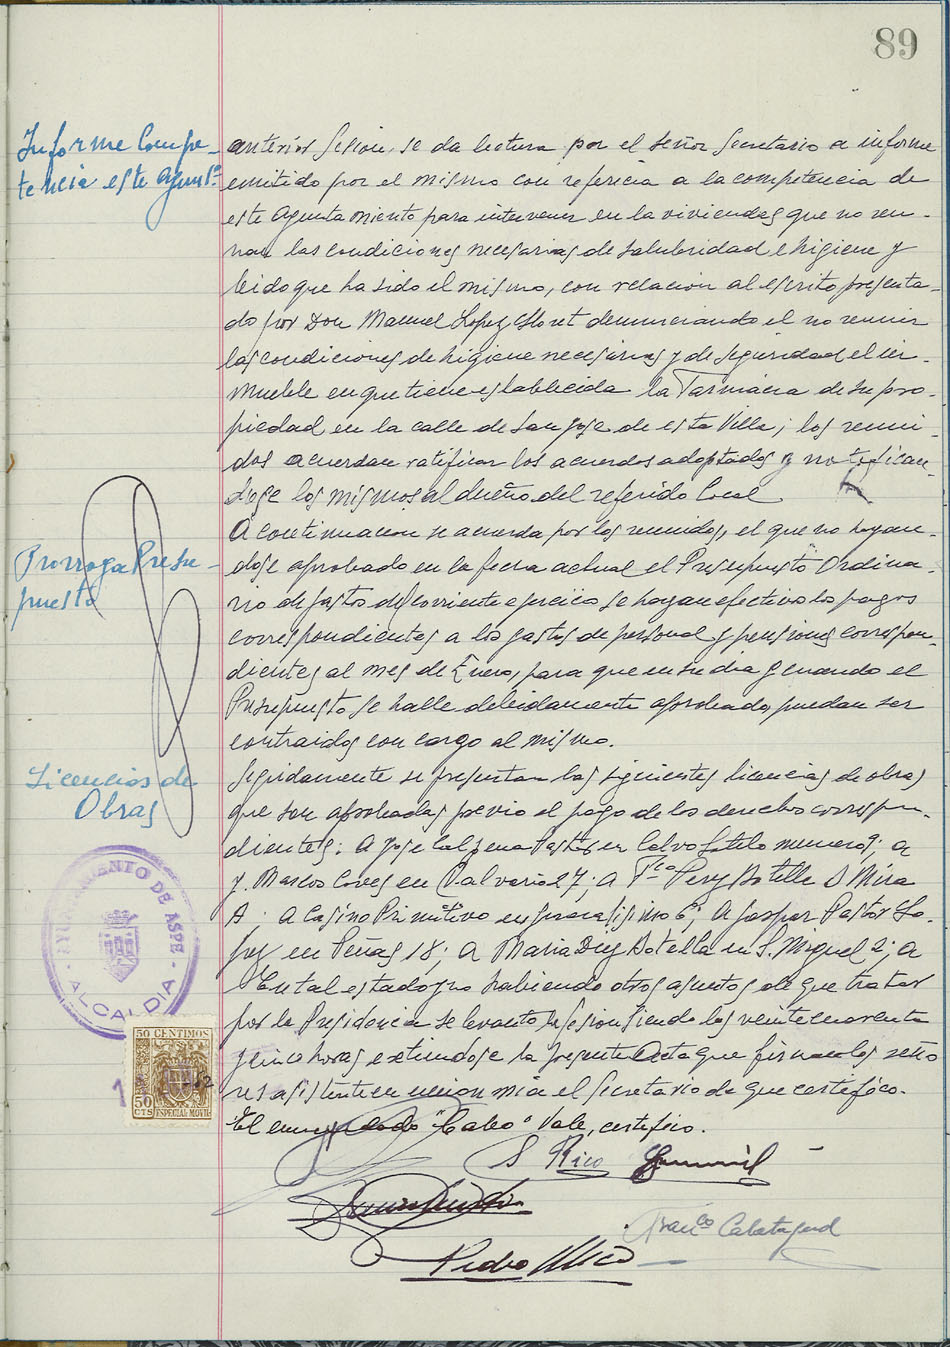 89
Informe Compe-
tencia este Ayunto
anterior sesion, se da lectura por el señor Secretario a informe
emitido por el mismo con refericia a la competencia de
este Ayuntamiento para intervenir en la viviendas que no reu-
nan las condiciones necesarias de salubridad e higiene y
leido que ha sido el mismo, con relacion al escrito presenta-
do por Don Manuel Lopez Lloret denunciando el no reunir
las condiciones de higiene necesarias y de seguridad el in-
mueble en que tiene establecida la Farmacia de su pro-
piedad en la calle de San Jose de esta Villa; los reuni-
dos acuerdan ratificar los acuerdos adoptados y notifican-
dose los mismos al dueño del referido local
Prorroga Presu-
puesto
A continuacion se acuerda por los reunidos, el que no hayan-
dose aprobado en la fecha actual el Presupuesto Ordina-
rio de gastos del corriente ejercicio, se hagan efectivo los pagos
correspondientes a los gastos de personal y pensiones correspon-
dientes al mes de Enero, para que en su dia y cuando el
Presupuesto se halle debidamente aprobado, puedan ser
contraidos con cargo al mismo.
Licencias de
Obras
Seguidamente se presentan las siguientes licencias de obras
que son aprobadas previo el pago de los derechos correspon-
dientes: A Jose Calpena Pastor en Calvo Sotelo numero 9; a
J. Marcos Coves en Calvario 27; a Fco Perez Botella D Mira
A. a Casino Primitivo en 6; A Gaspar Pastor Lo-
pez en Peñas 18; a Maria Diez Botella en S. Miguel 2; a
En tal estado y no habiendo otros asuntos de que tratar
por la Presidencia se levanto la sesion siendo las veinte cuarenta
y cinco horas extiendose la presente Acta que firman los seño
res asistentes en union mia el Secretario de que certifico.
El enmendado "Cabo" Vale, certifico.
AYUNTAMIENTO DE ASPE
ALCALDIA
50 CENTIMOS
50
CTS
ESPECIAL MOVIL
S Rico
Franco Calatayud
Pedro Rico